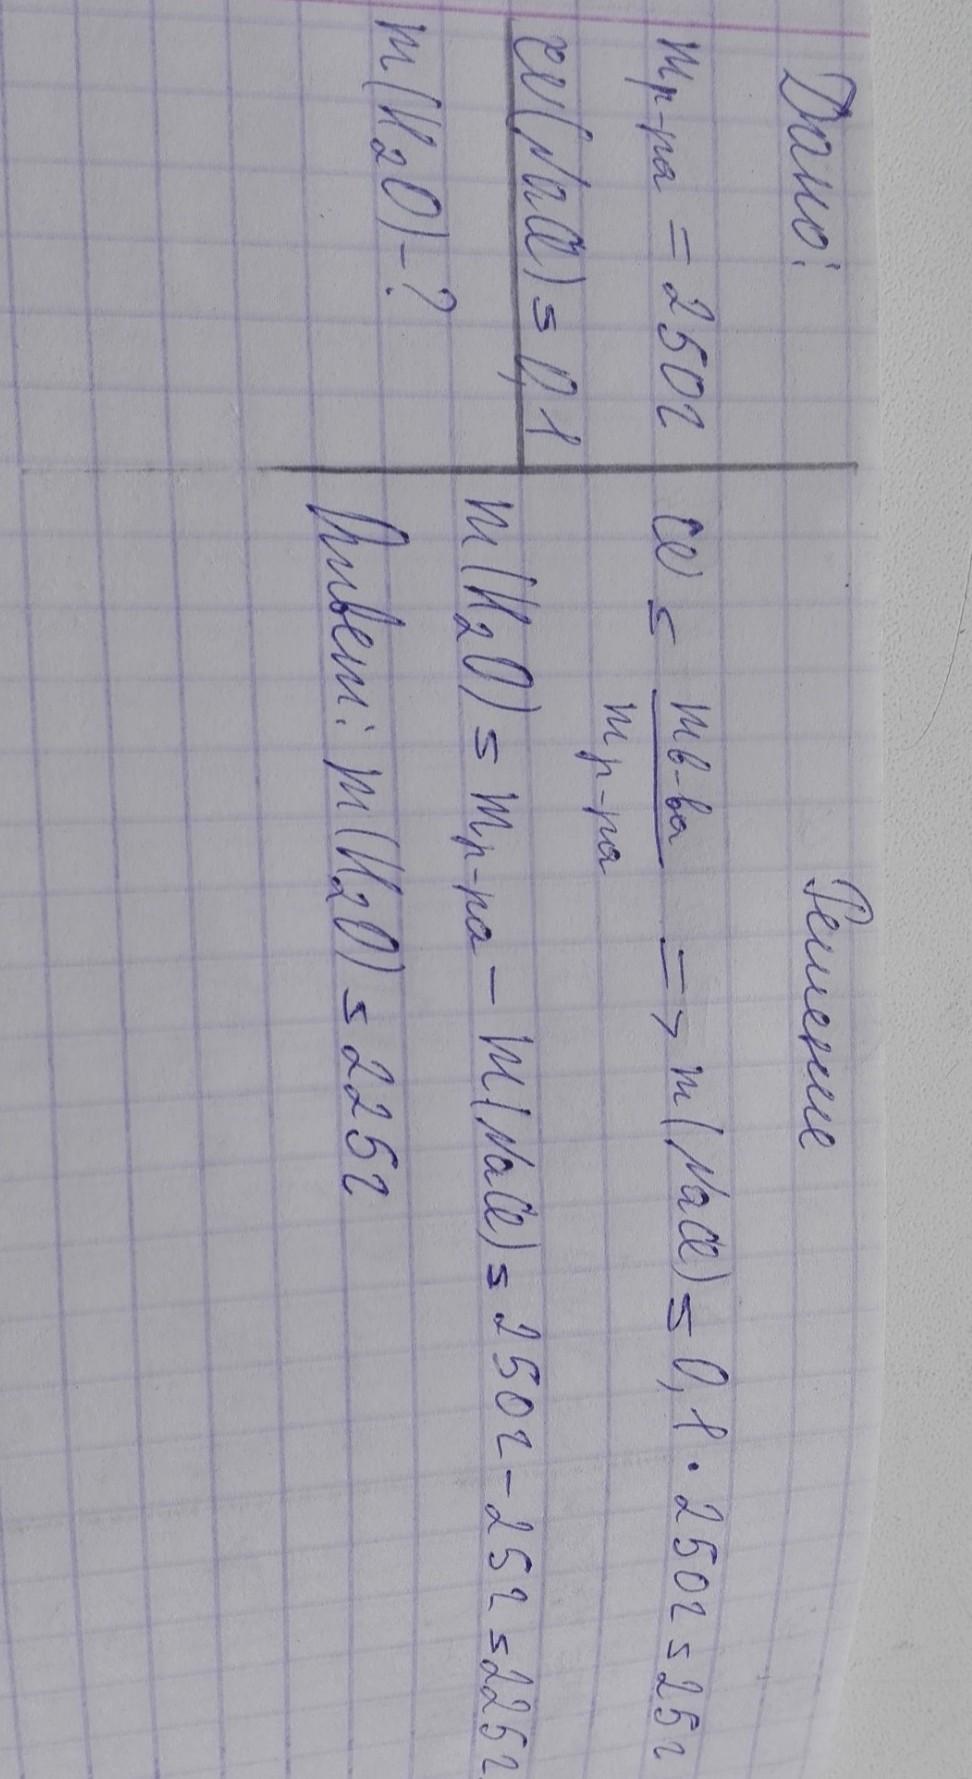 Дано:
m р-ра = 250г
ω(NaCl) = 0,1
m(H₂O) - ?
Решение
ω = m в-ва / m р-ра => m(NaCl) = 0,1 · 250г = 25г
m(H₂O) = m р-ра - m(NaCl) = 250г - 25г = 225г
Ответ: m(H₂O) = 225г